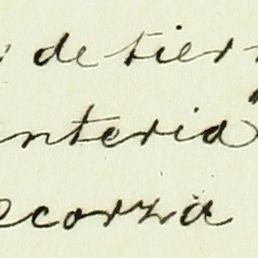 de tier
nteria"
ecorza